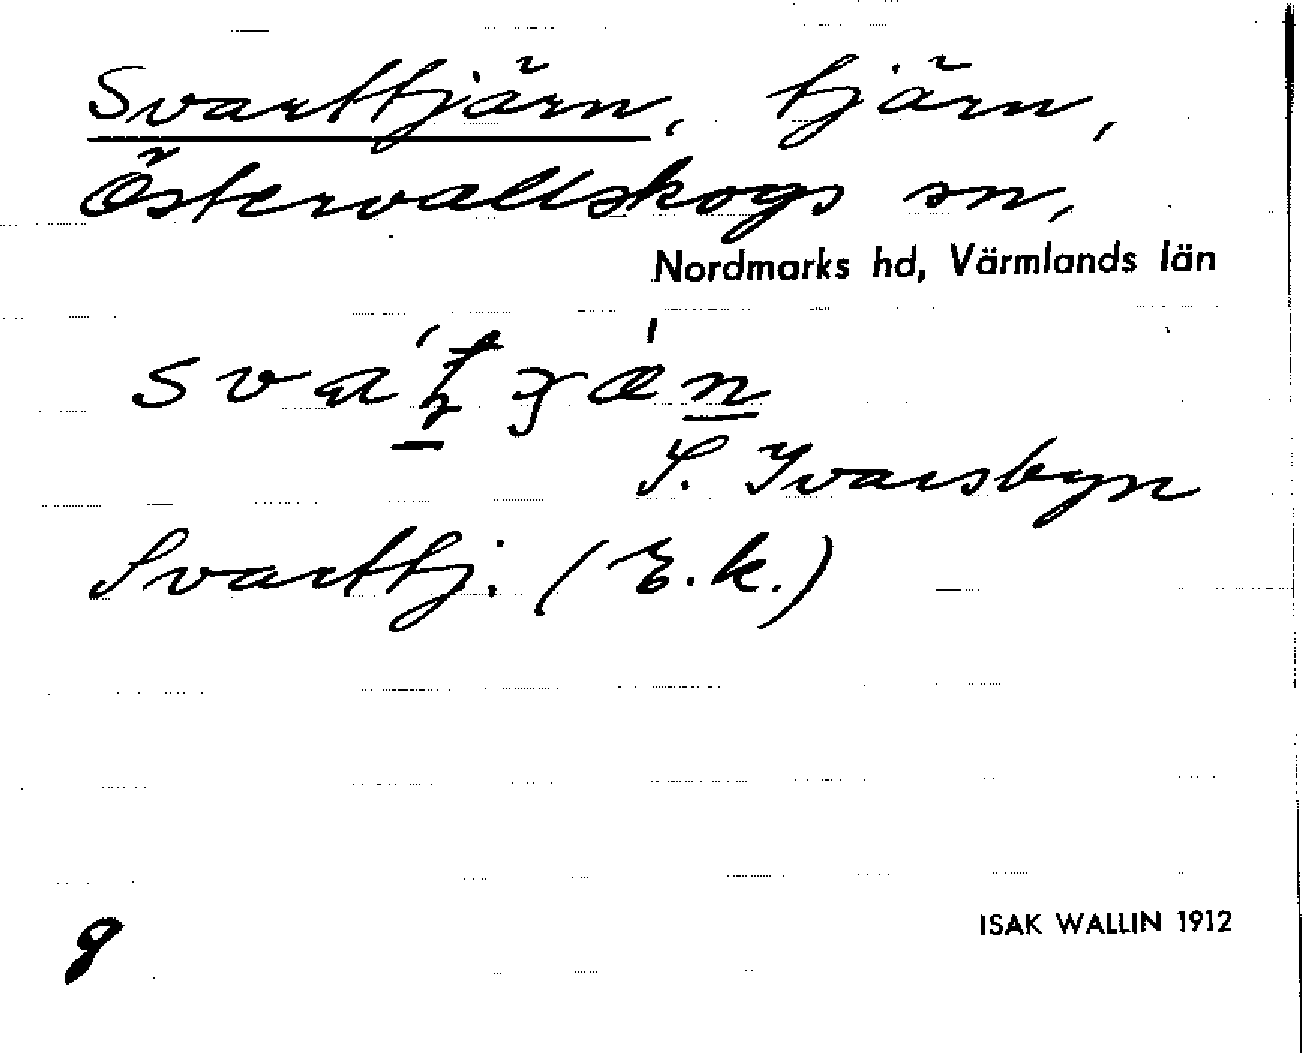 Svarttjärn, tjärn,
Östervallskogs sn,
Nordmarks hd, Värmlands län
S. Ivarsbyn
Svarttj. (E.k.)
ISAK WALLIN 1912